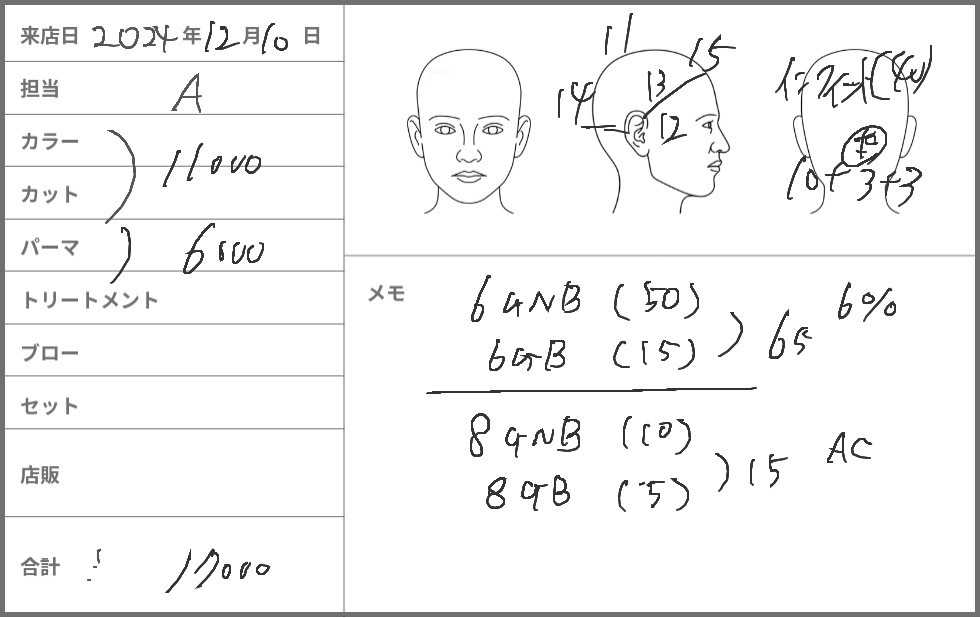 来店日 2024年12月10日
担当 A
カラー
カット
11000
パーマ 6000
トリートメント
ブロー
セット
店販
合計 17000
11
15
14
13
12
10+3+3
メモ
6GNB (50)
6GB (15)
65 6%
8GNB (10)
8GB (5)
15 AC